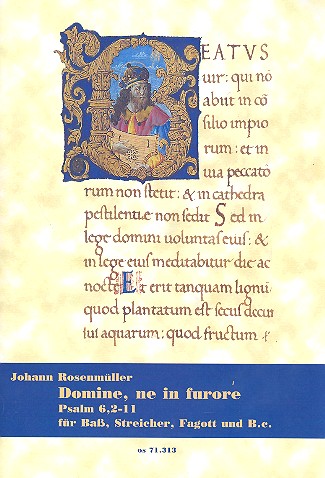 BEATVS
uir: qui nō
abiit in cō
silio impio
rum: et in
uia peccato
rum non stetit: & in cathedra
pestilentiæ non sedit Sed in
lege domini uoluntas eius: &
in lege eius meditabitur die ac
nocte Et erit tanquam lignū
quod plantatum est secus decur
sus aquarum: quod fructum
Johann Rosenmüller
Domine, ne in furore
Psalm 6,2-11
für Baß, Streicher, Fagott und B.c.
os 71.313